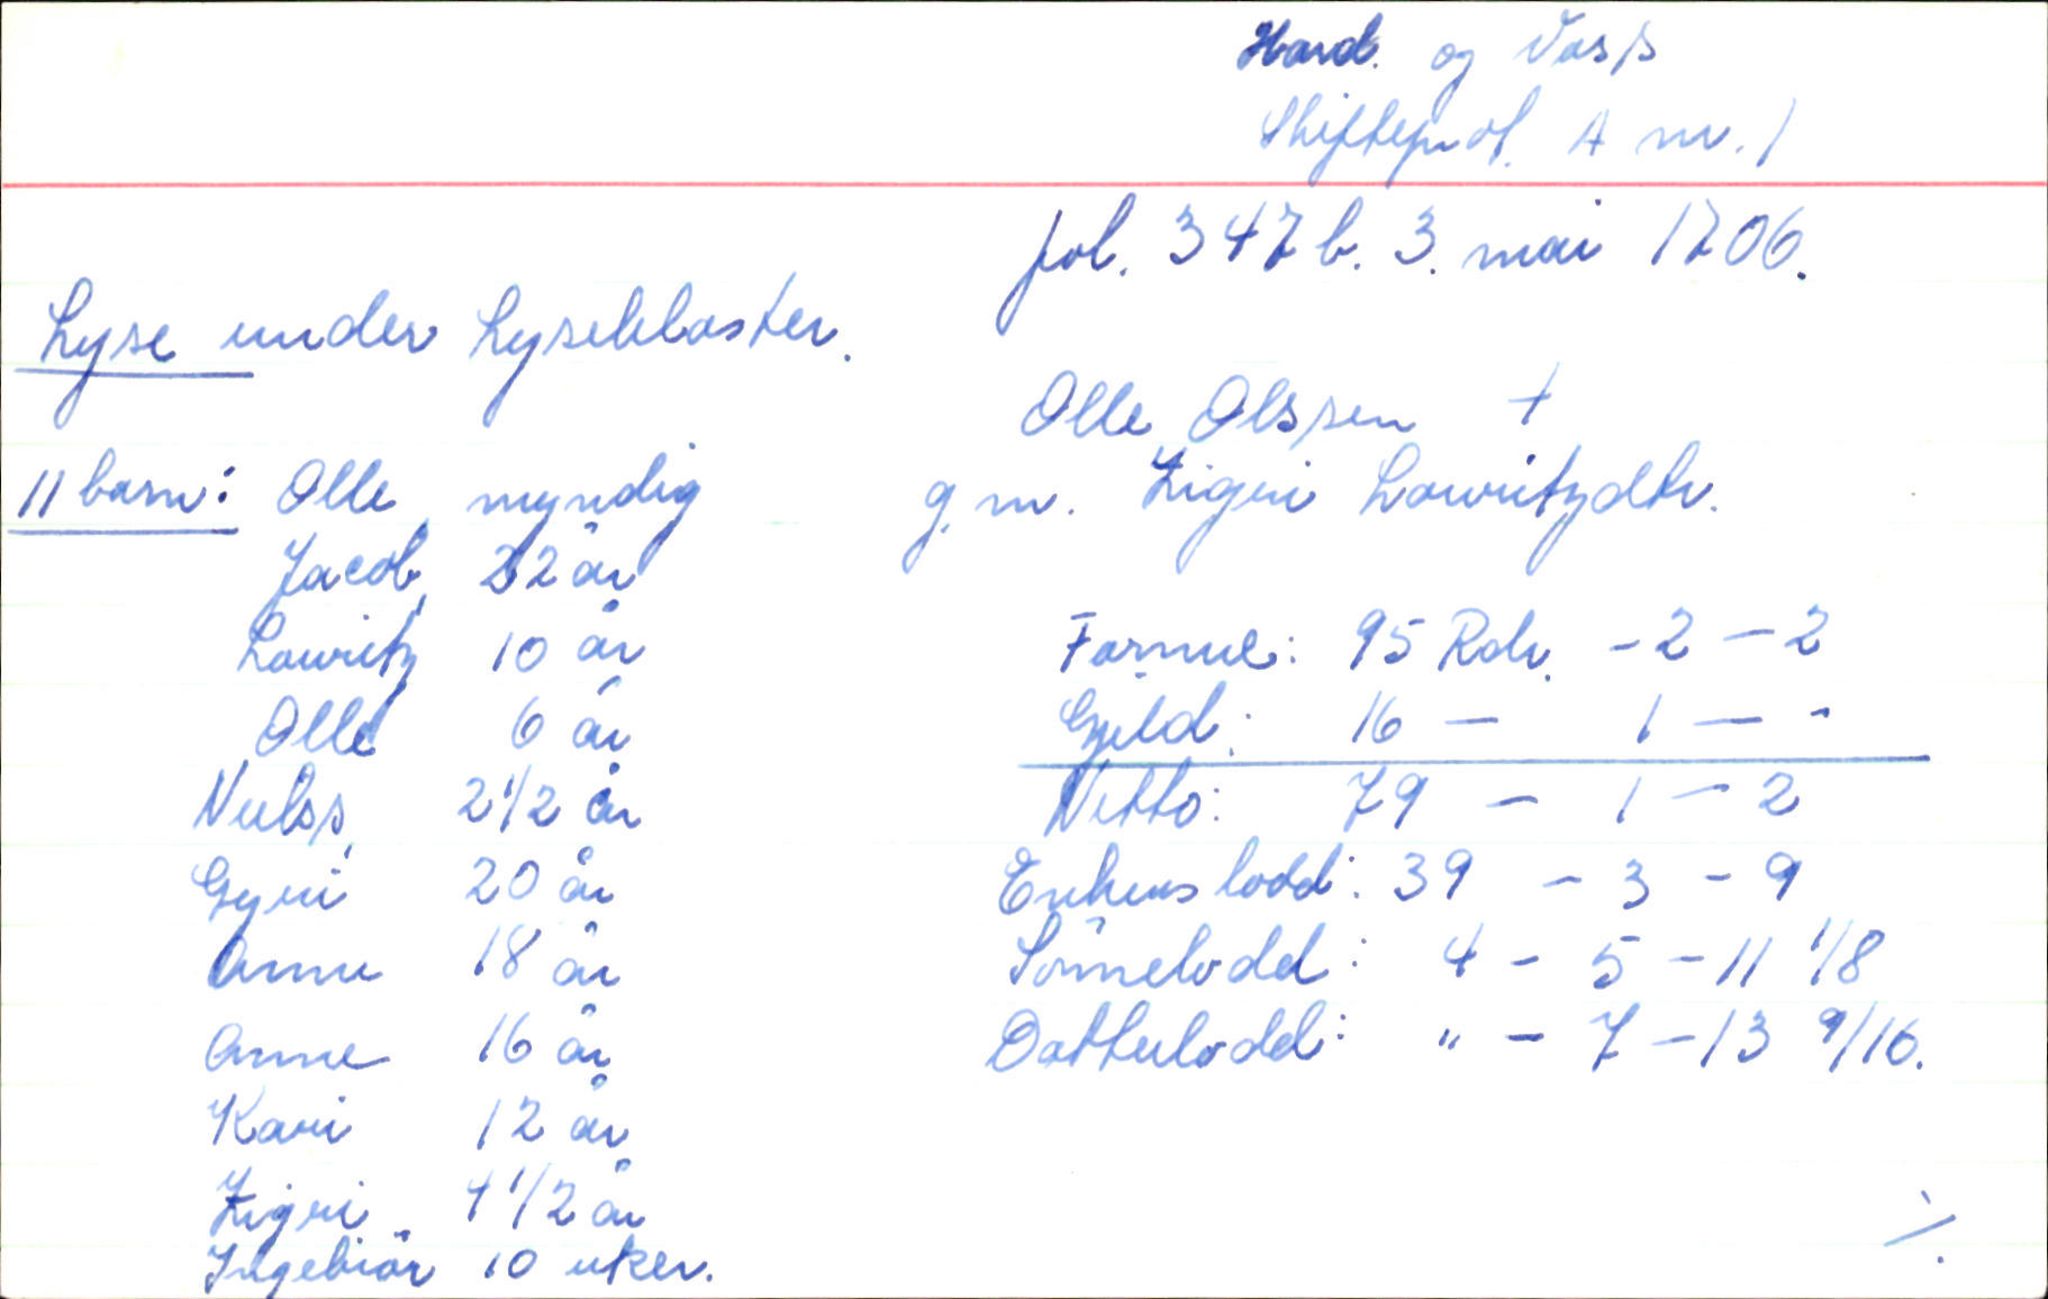 Hard. og Voss
Skifteprot. A nr. 1
fol. 347 b. 3. mai 1706.
Lyse under Lysekloster.
Olle Olssen +
g.m. Zigri Lowritzdtr.
11 barn: Olle myndig
Jacob 22 år
Lowritz 10 år
Olle 6 år
Neelss 2 1/2 år
Gyri 20 år
Anne 18 år
Anne 16 år
Kari 12 år
Zigri 4 1/2 år
Ingebiör 10 uker.
Formue: 95 Rdr. - 2 - 2
Gjeld: 16 - 1 - -
Netto: 79 - 1 - 2
Enkens lodd: 39 - 3 - 9
Sönnelodd: 4 - 5 - 11 1/8
Datterlodd: " - 7 - 13 9/16.
./.